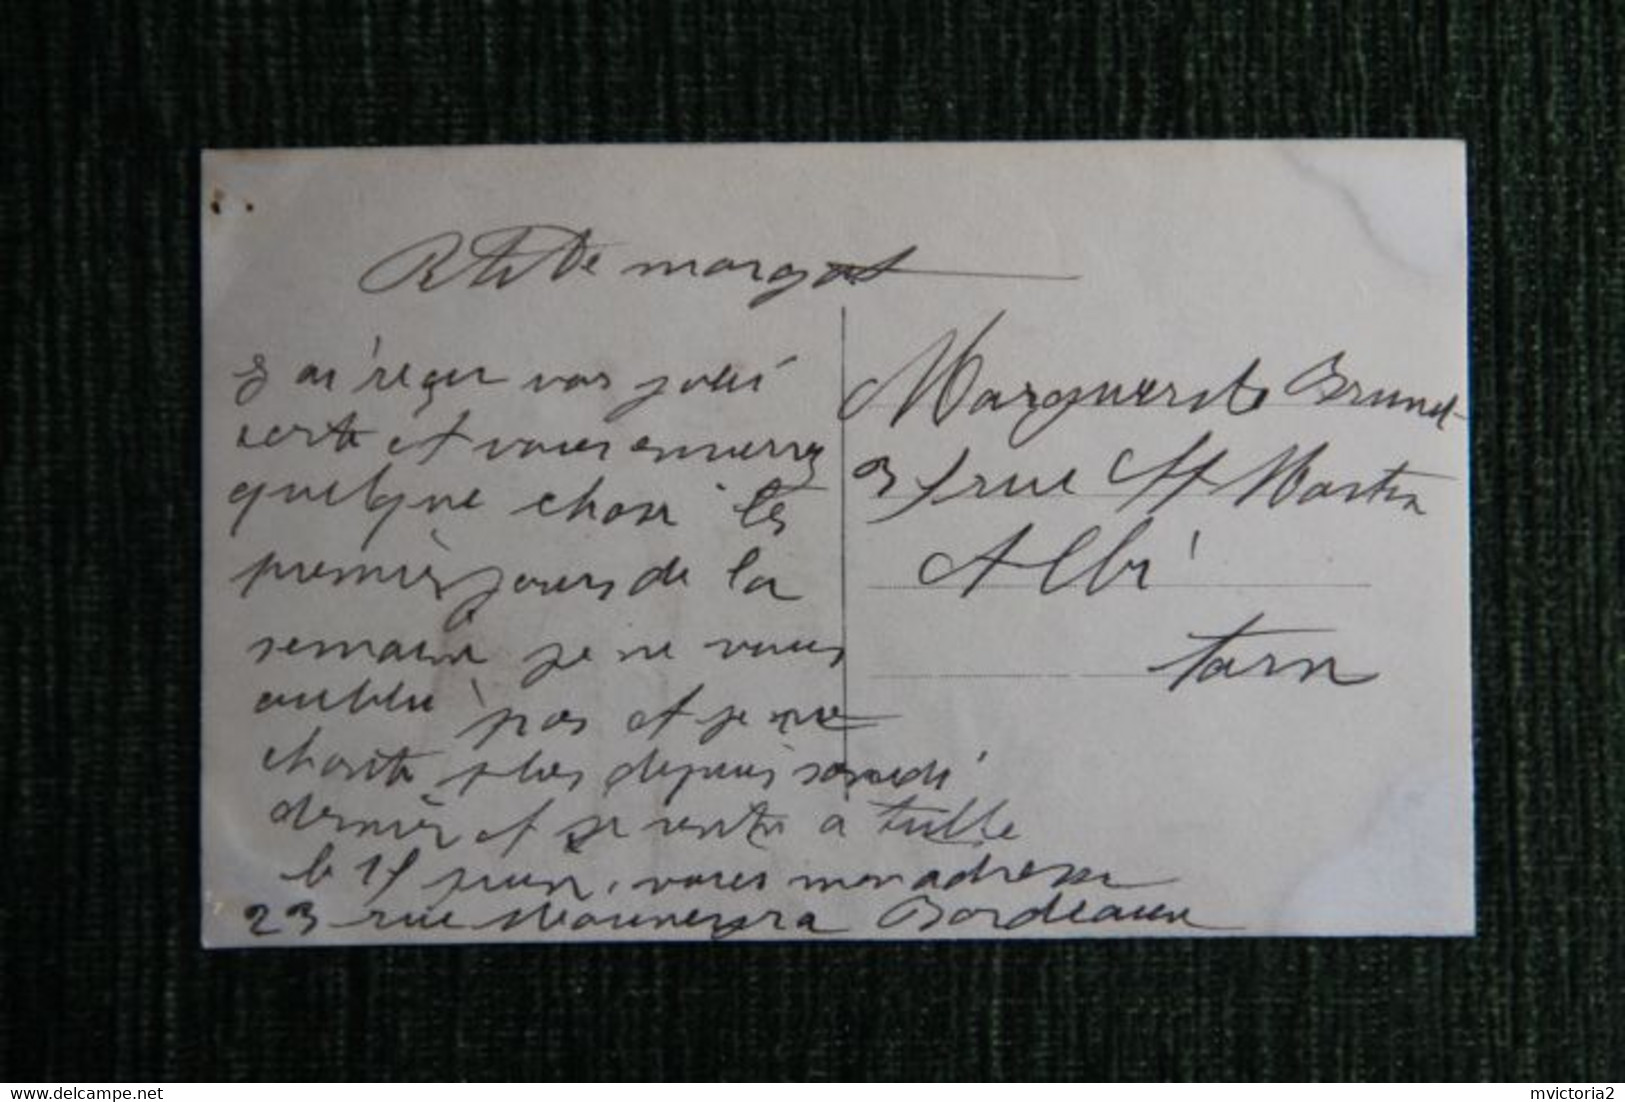 Petite margot
J ai reçu vos jolie
carte et vous enverrez
quelque chose les
premier jours de la
semaine je ne vous
oublie pas et je ne
chante plus depuis samedi
dernier et je rentre a tulle
le 15 juin, voici mon adresse
23 rue Bordeaux
Marguerite Brunet
rue St Martin
Albi
tarn
www.delcampe.net
mvictoria2